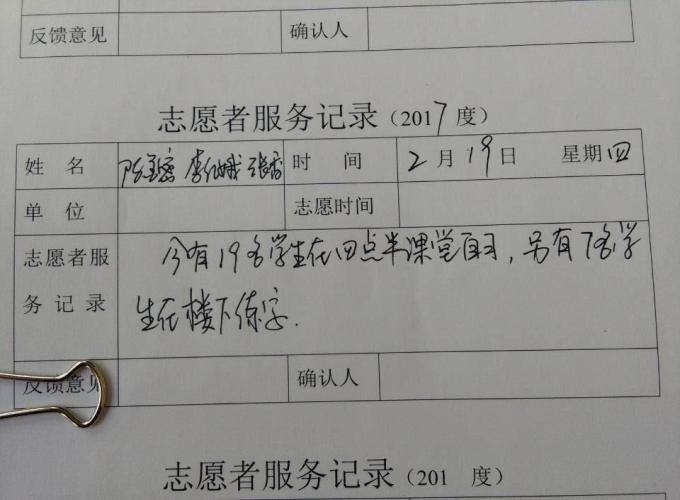 反馈意见 确认人
志愿者服务记录（2017度）
姓 名 李仙娥 时 间 2月19日 星期四
单 位 志愿时间
志愿者服 今有19名学生在四点半课堂自习，另有7名学
务 记 录 生在楼下练字.
反馈意见 确认人
志愿者服务记录（201 度）